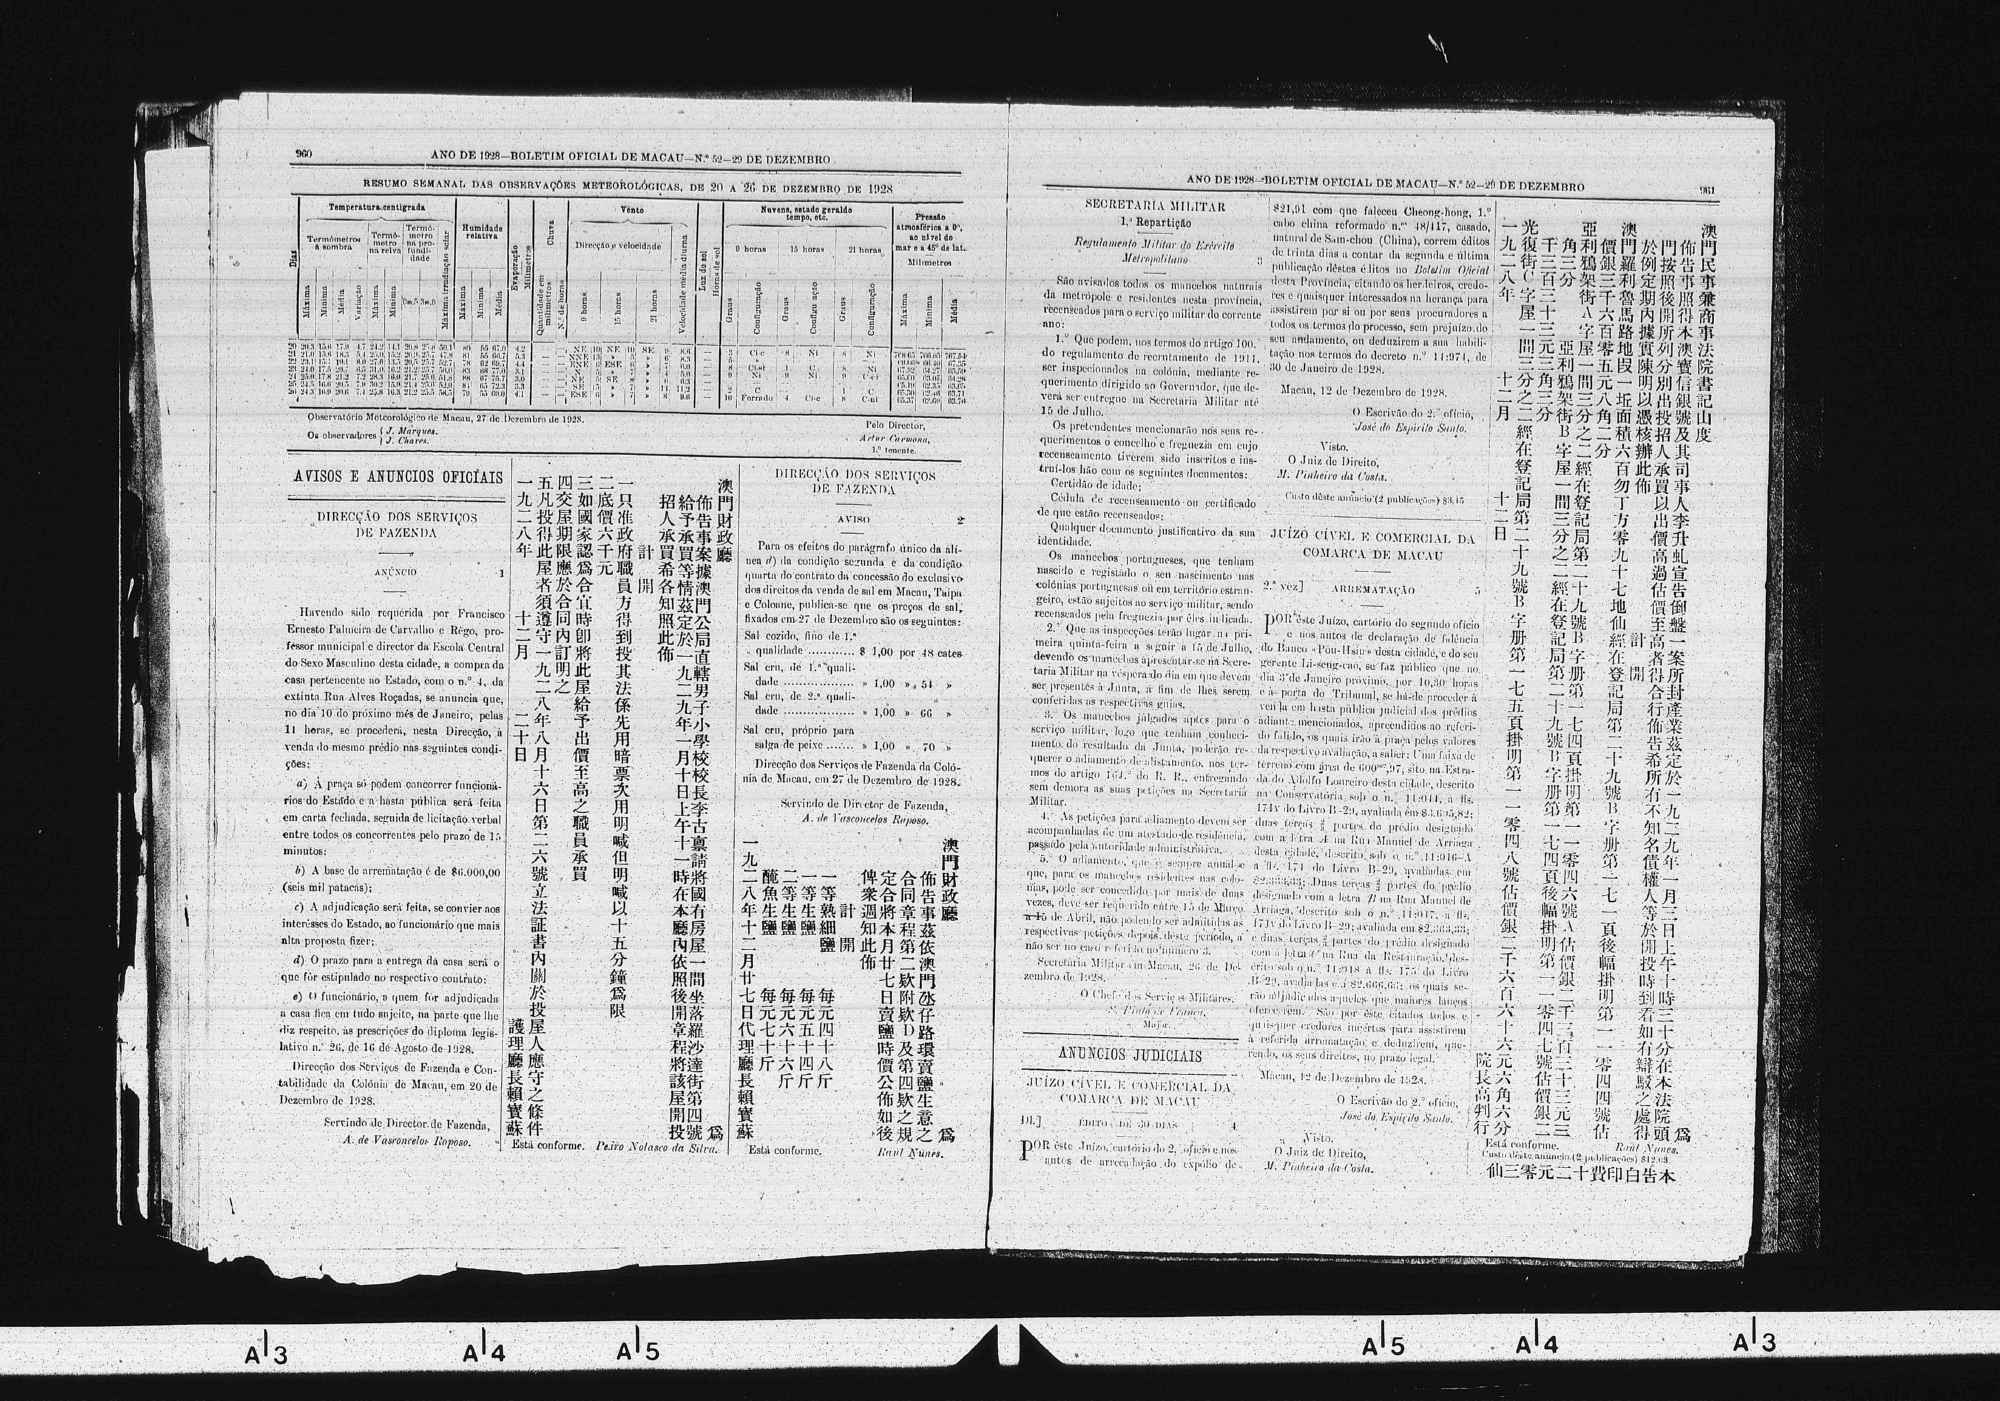 960
ANO DE 1928—BOLETIM OFICIAL DE MACAU—N.º 52—29 DE DEZEMBRO
RESUMO SEMANAL DAS OBSERVAÇÕES METEOROLÓGICAS, DE 20 A 26 DE DEZEMBRO DE 1928
Dias
Temperatura centigrada
Termómetros à sombra
Termómetro na relva
Termómetro na profundidade
Máxima irradiação solar
Humidade relativa
Evaporação Milimetros
Chuva
Quantidade em milímetros
N.º de horas
Vento
Direcção e velocidade
9 horas
15 horas
21 horas
Velocidade média diurna
Luz do sol Horas de sol
Nuvens, estado geral do tempo, etc.
9 horas
15 horas
21 horas
Graus
Configuração
Graus
Configuração
Graus
Configuração
Pressão atmosférica a 0º, ao nível do mar e a 45º de lat.
Milimetros
Máxima
Mínima
Média
Observatório Meteorológico de Macau, 27 de Dezembro de 1928.
Os observadores
J. Marques.
J. Chares.
Pelo Director,
Artur Carmona,
1.º tenente.
AVISOS E ANUNCIOS OFICÍAIS
DIRECÇÃO DOS SERVIÇOS
DE FAZENDA
ANÚNCIO 1
Havendo sido requerida por Francisco
Ernesto Palmeira de Carvalho e Rêgo, pro-
fessor municipal e director da Escola Central
do Sexo Masculino desta cidade, a compra da
casa pertencente ao Estado, com o n.º 4, da
extinta Rua Alves Roçadas, se anuncia que,
no dia 10 do próximo mês de Janeiro, pelas
11 horas, se procederá, nesta Direcção, à
venda do mesmo prédio nas seguintes condi-
ções:
a) Á praça só podem concorrer funcioná-
rios do Estado e a hasta pública será feita
em carta fechada, seguida de licitação verbal
entre todos os concorrentes pelo prazo de 15
minutos;
b) A base de arrematação é de $6.000,00
(seis mil patacas);
c) A adjudicação será feita, se convier aos
interêsses do Estado, ao funcionário que mais
alta proposta fizer;
d) O prazo para a entrega da casa será o
que fôr estipulado no respectivo contrato;
e) O funcionário, a quem fôr adjudicada
a casa fica em tudo sujeito, na parte que lhe
diz respeito, às prescrições do diploma legis-
lativo n.º 26, de 16 de Agosto de 1928.
Direcção dos Serviços de Fazenda e Con-
tabilidade da Colónia de Macau, em 20 de
Dezembro de 1928.
Servindo de Director de Fazenda,
A. de Vasconcelos Raposo.
澳門財政廳 爲
佈告事案據澳門公局直轄男子小學校校長李古禀請將國有房屋一間坐落羅沙達街第四號
給予承買等情茲定於一九二九年一月十日上午十一時在本廳內依照後開章程將該屋開投
招人承買希各知照此佈
計開
一只准政府職員方得到投其法係先用暗票次用明喊但明喊以十五分鐘爲限
二底價六千元
三如國家認爲合宜時卽將此屋給予出價至高之職員承買
四交屋期限應於合同內訂明之
五凡投得此屋者須遵守一九二八年八月十六日第二六號立法証書內關於投屋人應守之條件
一九二八年 十二月 二十日 護理廳長賴寶蘇
Está conforme. Pedro Nolasco da Silva.
DIRECÇÃO DOS SERVIÇOS
DE FAZENDA
AVISO 2
Para os efeitos do parágrafo único da alí-
nea d) da condição segunda e da condição
quarta do contrato da concessão do exclusivo
dos direitos da venda de sal em Macau, Taipa
e Coloane, publica-se que os preços de sal,
fixados em 27 de Dezembro são os seguintes:
Sal cozido, fino de 1.ª
qualidade ............ $ 1,00 por 48 cates
Sal cru, de 1.ª quali-
dade .................. » 1,00 » 54 »
Sal cru, de 2.ª quali-
dade .................. » 1,00 » 66 »
Sal cru, próprio para
salga de peixe ....... » 1,00 » 70 »
Direcção dos Serviços de Fazenda da Coló-
nia de Macau, em 27 de Dezembro de 1928.
Servindo de Director de Fazenda,
A. de Vasconcelos Raposo.
澳門財政廳 爲
佈告事茲依澳門氹仔路環賣鹽生意之
合同章程第二欵附欵D及第四欵之規
定合將本月廿七日賣鹽時價公佈如後
俾衆週知此佈
計開
一等熟細鹽 每元四十八斤
一等生鹽 每元五十四斤
二等生鹽 每元六十六斤
醃魚生鹽 每元七十斤
一九二八年十二月廿七日代理廳長賴寶蘇
Está conforme. Raul Nunes.
ANO DE 1928—BOLETIM OFICIAL DE MACAU—N.º 52—29 DE DEZEMBRO
961
SECRETARÍA MILITAR
1.ª Repartição
Regulamento Militar do Exército
Metropolitano 3
São avisados todos os mancebos naturais
da metrópole e residentes nesta província,
recenseados para o serviço militar do corrente
ano:
1.º Que podem, nos termos do artigo 100.º
do regulamento de recrutamento de 1911,
ser inspecionados na colónia, mediante re-
querimento dirigido ao Governador, que de-
verá ser entregue na Secretaria Militar até
15 de Julho.
Os pretendentes mencionarão nos seus re-
querimentos o concelho e freguezia em cujo
recenseamento tiverem sido inscritos e ins-
truí-los hão com os seguintes documentos:
Certidão de idade;
Cédula de recenseamento ou certificado
de que estão recenseados;
Qualquer documento justificativo da sua
identidade.
Os mancebos portugueses, que tenham
nascido e registado o seu nascimento nas
colónias portuguesas ou em território estran-
geiro, estão sujeitos ao serviço militar, sendo
recenseados pela freguezia por êles indicada.
2.º Que as inspecções terão lugar na pri-
meira quinta-feira a seguir a 15 de Julho,
devendo os mancebos apresentar-se na Secre-
taria Militar na véspera do dia em que devem
ser presentes à Junta, a fim de lhes serem
conferidas as respectivas guias.
3.º Os mancebos julgados aptos para o
serviço militar, logo que tenham conheci-
mento do resultado da Junta, poderão re-
querer o adiamento de alistamento, nos ter-
mos do artigo 164.º do R. R., entregando
sem demora as suas petições na Secretaria
Militar.
4.º As petições para adiamento devem ser
acompanhadas de um atestado de residência,
passado pela autoridade administrativa.
5.º O adiamento, que é sempre anual e
que, para os mancebos residentes nas coló-
nias, pode ser concedido por mais de duas
vezes, deve ser requerido entre 15 de Março
a 15 de Abril, não podendo ser admitidas as
respectivas petições depois dêste período, a
não ser no caso referido no número 3.
Secretaria Militar em Macau, 26 de De-
zembro de 1928.
O Chefe dos Serviços Militares,
Major.
ANÚNCIOS JUDICIAIS
JUÍZO CÍVEL E COMERCIAL DA
COMARCA DE MACAU
ÉDITOS DE 30 DIAS 4
POR êste Juízo, cartório do 2.º ofício e nos
autos de arrecadação do expólio de
$21,91 com que faleceu Cheong-hong, 1.º
cabo china reformado n.º 48/117, casado,
natural de Sam-chou (China), correm éditos
de trinta dias a contar da segunda e última
publicação dêstes éditos no Boletim Oficial
desta Província, citando os herdeiros, credo-
res e quaisquer interessados na herança para
assistirem por si ou por seus procuradores a
todos os termos do processo, sem prejuízo do
seu andamento, ou deduzirem a sua habili-
tação nos termos do decreto n.º 11:974, de
30 de Janeiro de 1928.
Macau, 12 de Dezembro de 1928.
O Escrivão do 2.º ofício,
José do Espírito Santo.
Visto.
O Juiz de Direito,
M. Pinheiro da Costa.
Custo dêste anúncio (2 publicações) $3,45
JUÍZO CÍVEL E COMERCIAL DA
COMARCA DE MACAU
2.ª vez] ARREMATAÇÃO 5
POR êste Juízo, cartório do segundo ofício
e nos autos de declaração de falência
do Banco «Pou-Hsin» desta cidade, e do seu
gerente Li-seng-cao, se faz público que no
dia 3 de Janeiro próximo, por 10,30 horas
e à porta do Tribunal, se há-de proceder à
venda em hasta pública judicial dos prédios
adiante mencionados, apreendidos ao referi-
do falido, os quais irão à praça pelos valores
da respectiva avaliação, a saber: Uma faixa de
terreno com área de 600m²,97, sito na Estra-
da do Adolfo Loureiro desta cidade, descrito
na Conservatória sob o n.º 11:044, a fls.
171v do Livro B-29, avaliada em $3.605,82;
duas terças partes do prédio designado
com a letra A na Rua Manuel de Arriaga
desta cidade, descrito sob o n.º 11:046-A
a fls. 174 do Livro B-29, avaliadas em
$2.333,33; Duas terças partes do prédio
designado com a letra B na Rua Manuel de
Arriaga, descrito sob o n.º 11:047, a fls.
174v do Livro B-29; avaliada em $2.333,33;
e duas terças partes do prédio designado
com a letra C na Rua da Restauração, des-
crito sob o n.º 11:048 à fls. 175 do Livro
B-29, avaliadas em $2.666,66; os quais se-
rão adjudicados àqueles que maiores lanços
oferecerem. São por êste citados todos e
quaisquer credores incertos para assistirem
à referida arrematação e deduzirem, que-
rendo, os seus direitos, no prazo legal.
Macau, 12 de Dezembro de 1928.
O Escrivão do 2.º ofício,
José do Espírito Santo.
Visto.
O Juiz de Direito,
M. Pinheiro da Costa.
澳門民事兼商事法院書記山度 爲
佈告事照得本澳寶信銀號及其司事人李升虬宣告倒盤一案所封產業茲定於一九二九年一月三日上午十時三十分在本法院頭
門按照後開所列分別出投招人承買以出價高過估價至高者得合行佈告希所有不知名債權人等於開投時到看如有辯駁之處得
於例定期內據實陳明以憑核辦此佈
計開
澳門羅利魯馬路地段一坵面積六百勿丁方零九十七地仙經在登記局第二十九號B字册第一七一頁後幅掛明第一一零四四號估
價銀三千六百零五元八角二分
亞利鴉架街A字屋一間三分之二經在登記局第二十九號B字册第一七四頁掛明第一一零四六號A估價銀二千三百三十三元三
角三分 亞利鴉架街B字屋一間三分之二經在登記局第二十九號B字册第一七四頁後幅掛明第一一零四七號估價銀二
千三百三十三元三角三分
光復街C字屋一間三分之二經在登記局第二十九號B字册第一七五頁掛明第一一零四八號估價銀二千六百六十六元六角六分
一九二八年 十二月 十二日 院長高判行
Está conforme. Raúl Nunes.
Custo dêste anúncio (2 publicações) $12,03
本告白印費十二元零三仙
A3
A4
A5
A5
A4
A3